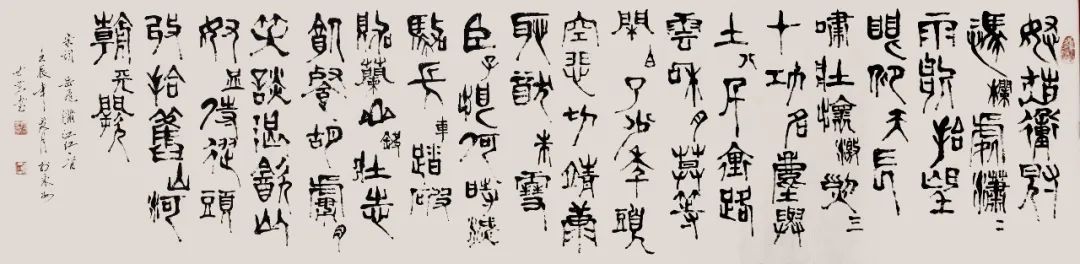 怒髮衝冠
憑欄處瀟〻
雨歇抬望
眼仰天長
嘯壯懷激烈三
十功名塵與
土八千里路
雲和月莫等
閑白了少年頭
空悲切靖康
恥猶未雪
臣子恨何時滅
駕長車踏破
賀蘭山缺壯志
飢餐胡虜肉
笑談渴飲匈
奴血待從頭
收拾舊山河
朝天闕
宋詞 岳飛滿江紅
壬辰年春月於